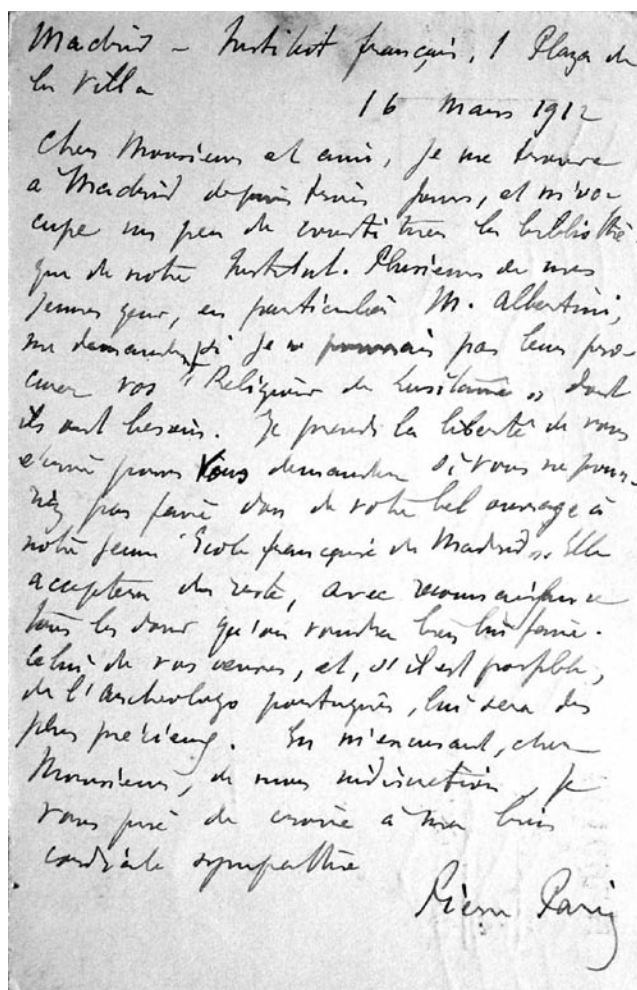 Madrid – Institut français, 1 Plaza de
la Villa
16 Mars 1912
Cher Monsieur et ami, je me trouve
à Madrid depuis trois jours, et m'oc-
cupe un peu de constituer la bibliothè-
que de notre Institut. Plusieurs de mes
jeunes gens, en particulier M. Albertini,
me demandent si je ne pourrais pas leur pro-
curer vos "Religiões da Lusitania" dont
ils ont besoin. Je prends la liberté de vous
écrire pour vous demander si vous ne pour-
riez pas faire don de votre bel ouvrage à
notre jeune "Ecole française de Madrid". Elle
acceptera du reste, avec reconnaissance
tous les dons qu'on voudra bien lui faire.
Celui de vos œuvres, et, s'il est possible,
de l'Archeologo português, lui sera des
plus précieux. En m'excusant, cher
Monsieur, de mon indiscrétion, je
vous prie de croire à ma bien
cordiale sympathie
Pierre Paris